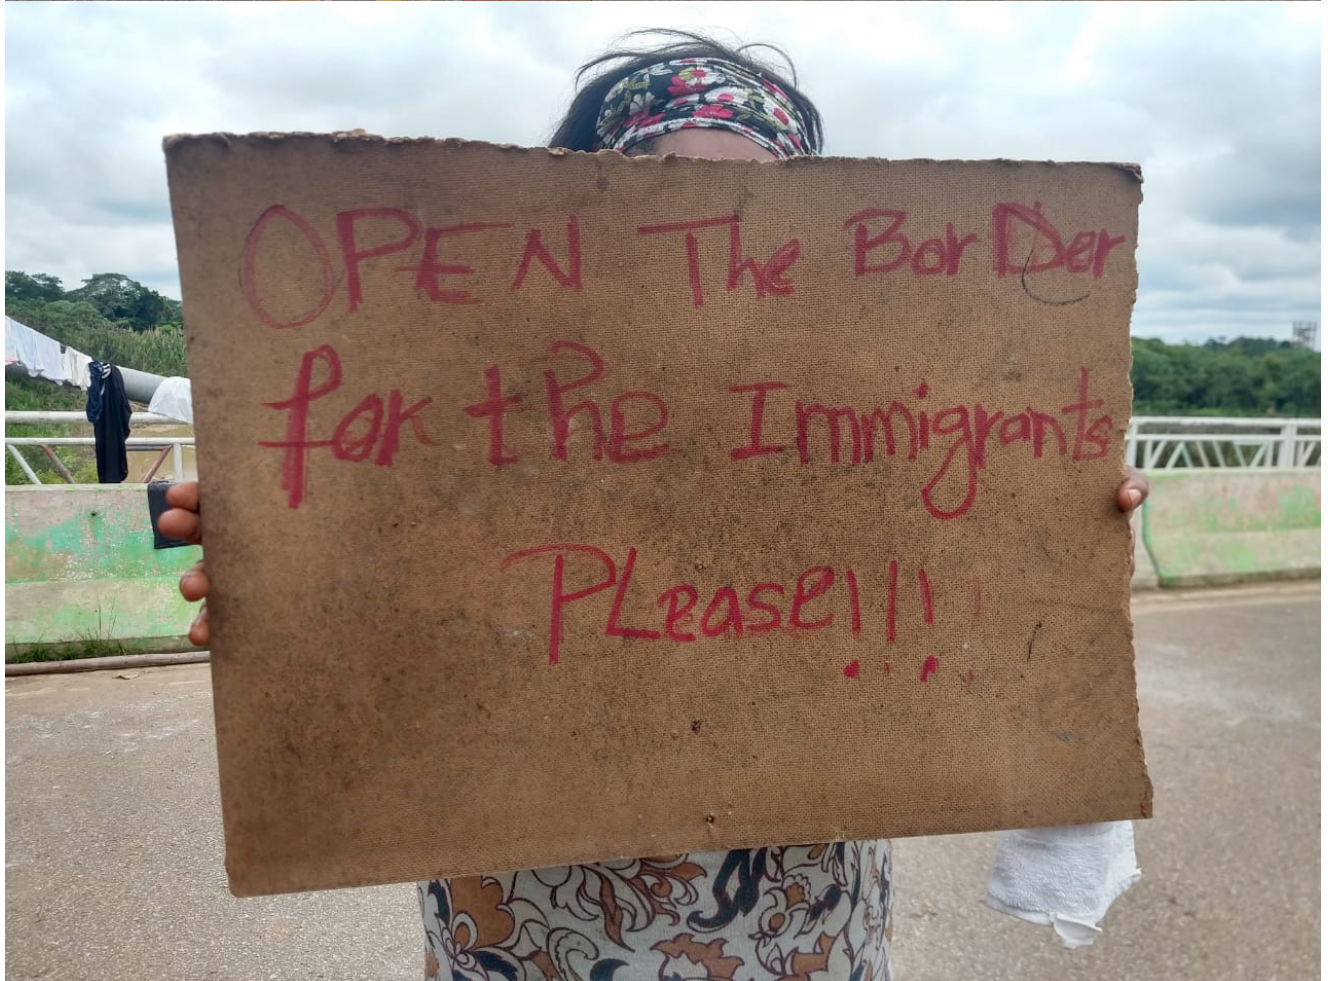 OPEN The BorDer
for the Immigrants
PLease!!!